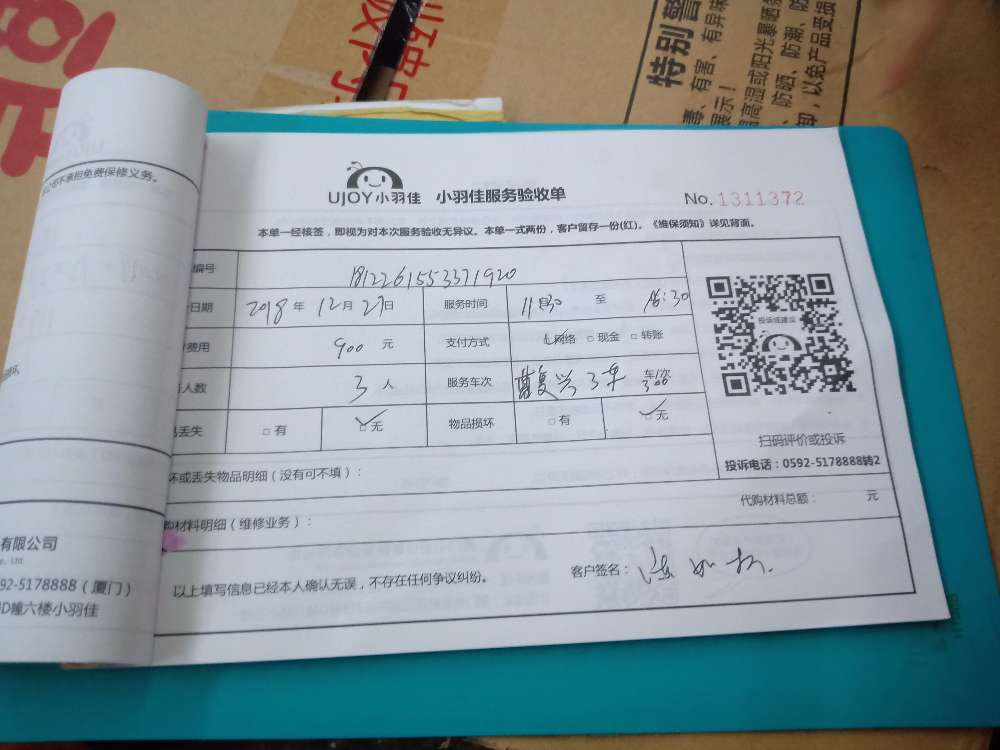 特别警
毒、有害、有异味
展示！
超高湿或阳光暴晒
防晒、防潮、防
以免产品受损
不承担免费保修义务。
UJOY小羽佳 小羽佳服务验收单
No. 1311372
本单一经核签，即视为对本次服务验收无异议。本单一式两份，客户留存一份(红)。《维保须知》详见背面。
编号 1812261553371920
日期 2018 年 12 月 27 日 服务时间 11:30 至 16:30
费用 900 元 支付方式 网络 □ 现金 □ 转账
人数 3 人 服务车次 复兴 3车 车/次 300
丢失 □ 有 □ 无 物品损坏 □ 有 □ 无
投诉或建议
扫码评价或投诉
投诉电话：0592-5178888转2
坏或丢失物品明细（没有可不填）：
代购材料总额： 元
购材料明细（维修业务）：
以上填写信息已经本人确认无误，不存在任何争议纠纷。
客户签名：
有限公司
., Ltd
92-5178888（厦门）
D幢六楼小羽佳